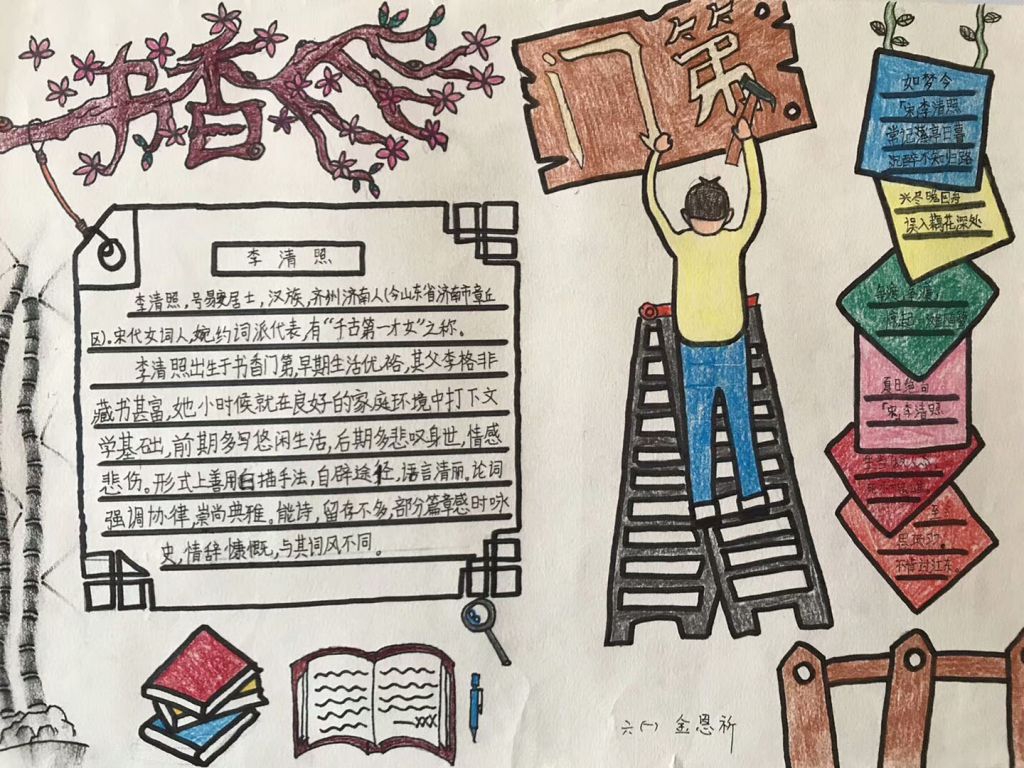 书香
门第
李清照
李清照,号易安居士,汉族,齐州济南人(今山东省济南市章丘
区)。宋代女词人,婉约词派代表,有“千古第一才女”之称。
李清照出生于书香门第,早期生活优裕,其父李格非
藏书甚富,她小时候就在良好的家庭环境中打下文
学基础,前期多写悠闲生活,后期多悲叹身世,情感
悲伤。形式上善用白描手法,自辟途径,语言清丽。论词
强调协律,崇尚典雅。能诗,留存不多,部分篇章感时咏
史,情辞慷慨,与其词风不同。
如梦令
「宋李清照
常记溪亭日暮
沉醉不知归路
兴尽晚回舟
误入藕花深处
争渡,争渡
夏日绝句
「宋李清照
生当做人杰
不肯过江东
六(一) 金恩祈